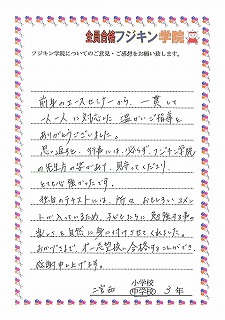 全員合格フジキン学院
フジキン学院についてのご意見・ご感想をお願い致します。
前身のエースセミナーから、一貫して
一人一人に対応した温かいご指導を
ありがとうございました。
思い返すと、行事には、必らず、フジキン学院
の先生方の姿があり、見守ってくださり
とても心強かったです。
独自のテキストには、所々おもしろいコメン
トが入っているため、子どもたちに勉強する事の
楽しさも自然に身に付けさせてくれました。
おかげさまで、第一志望校に合格することができ、
感謝申し上げます。
二宮西
小学校
中学校
3年